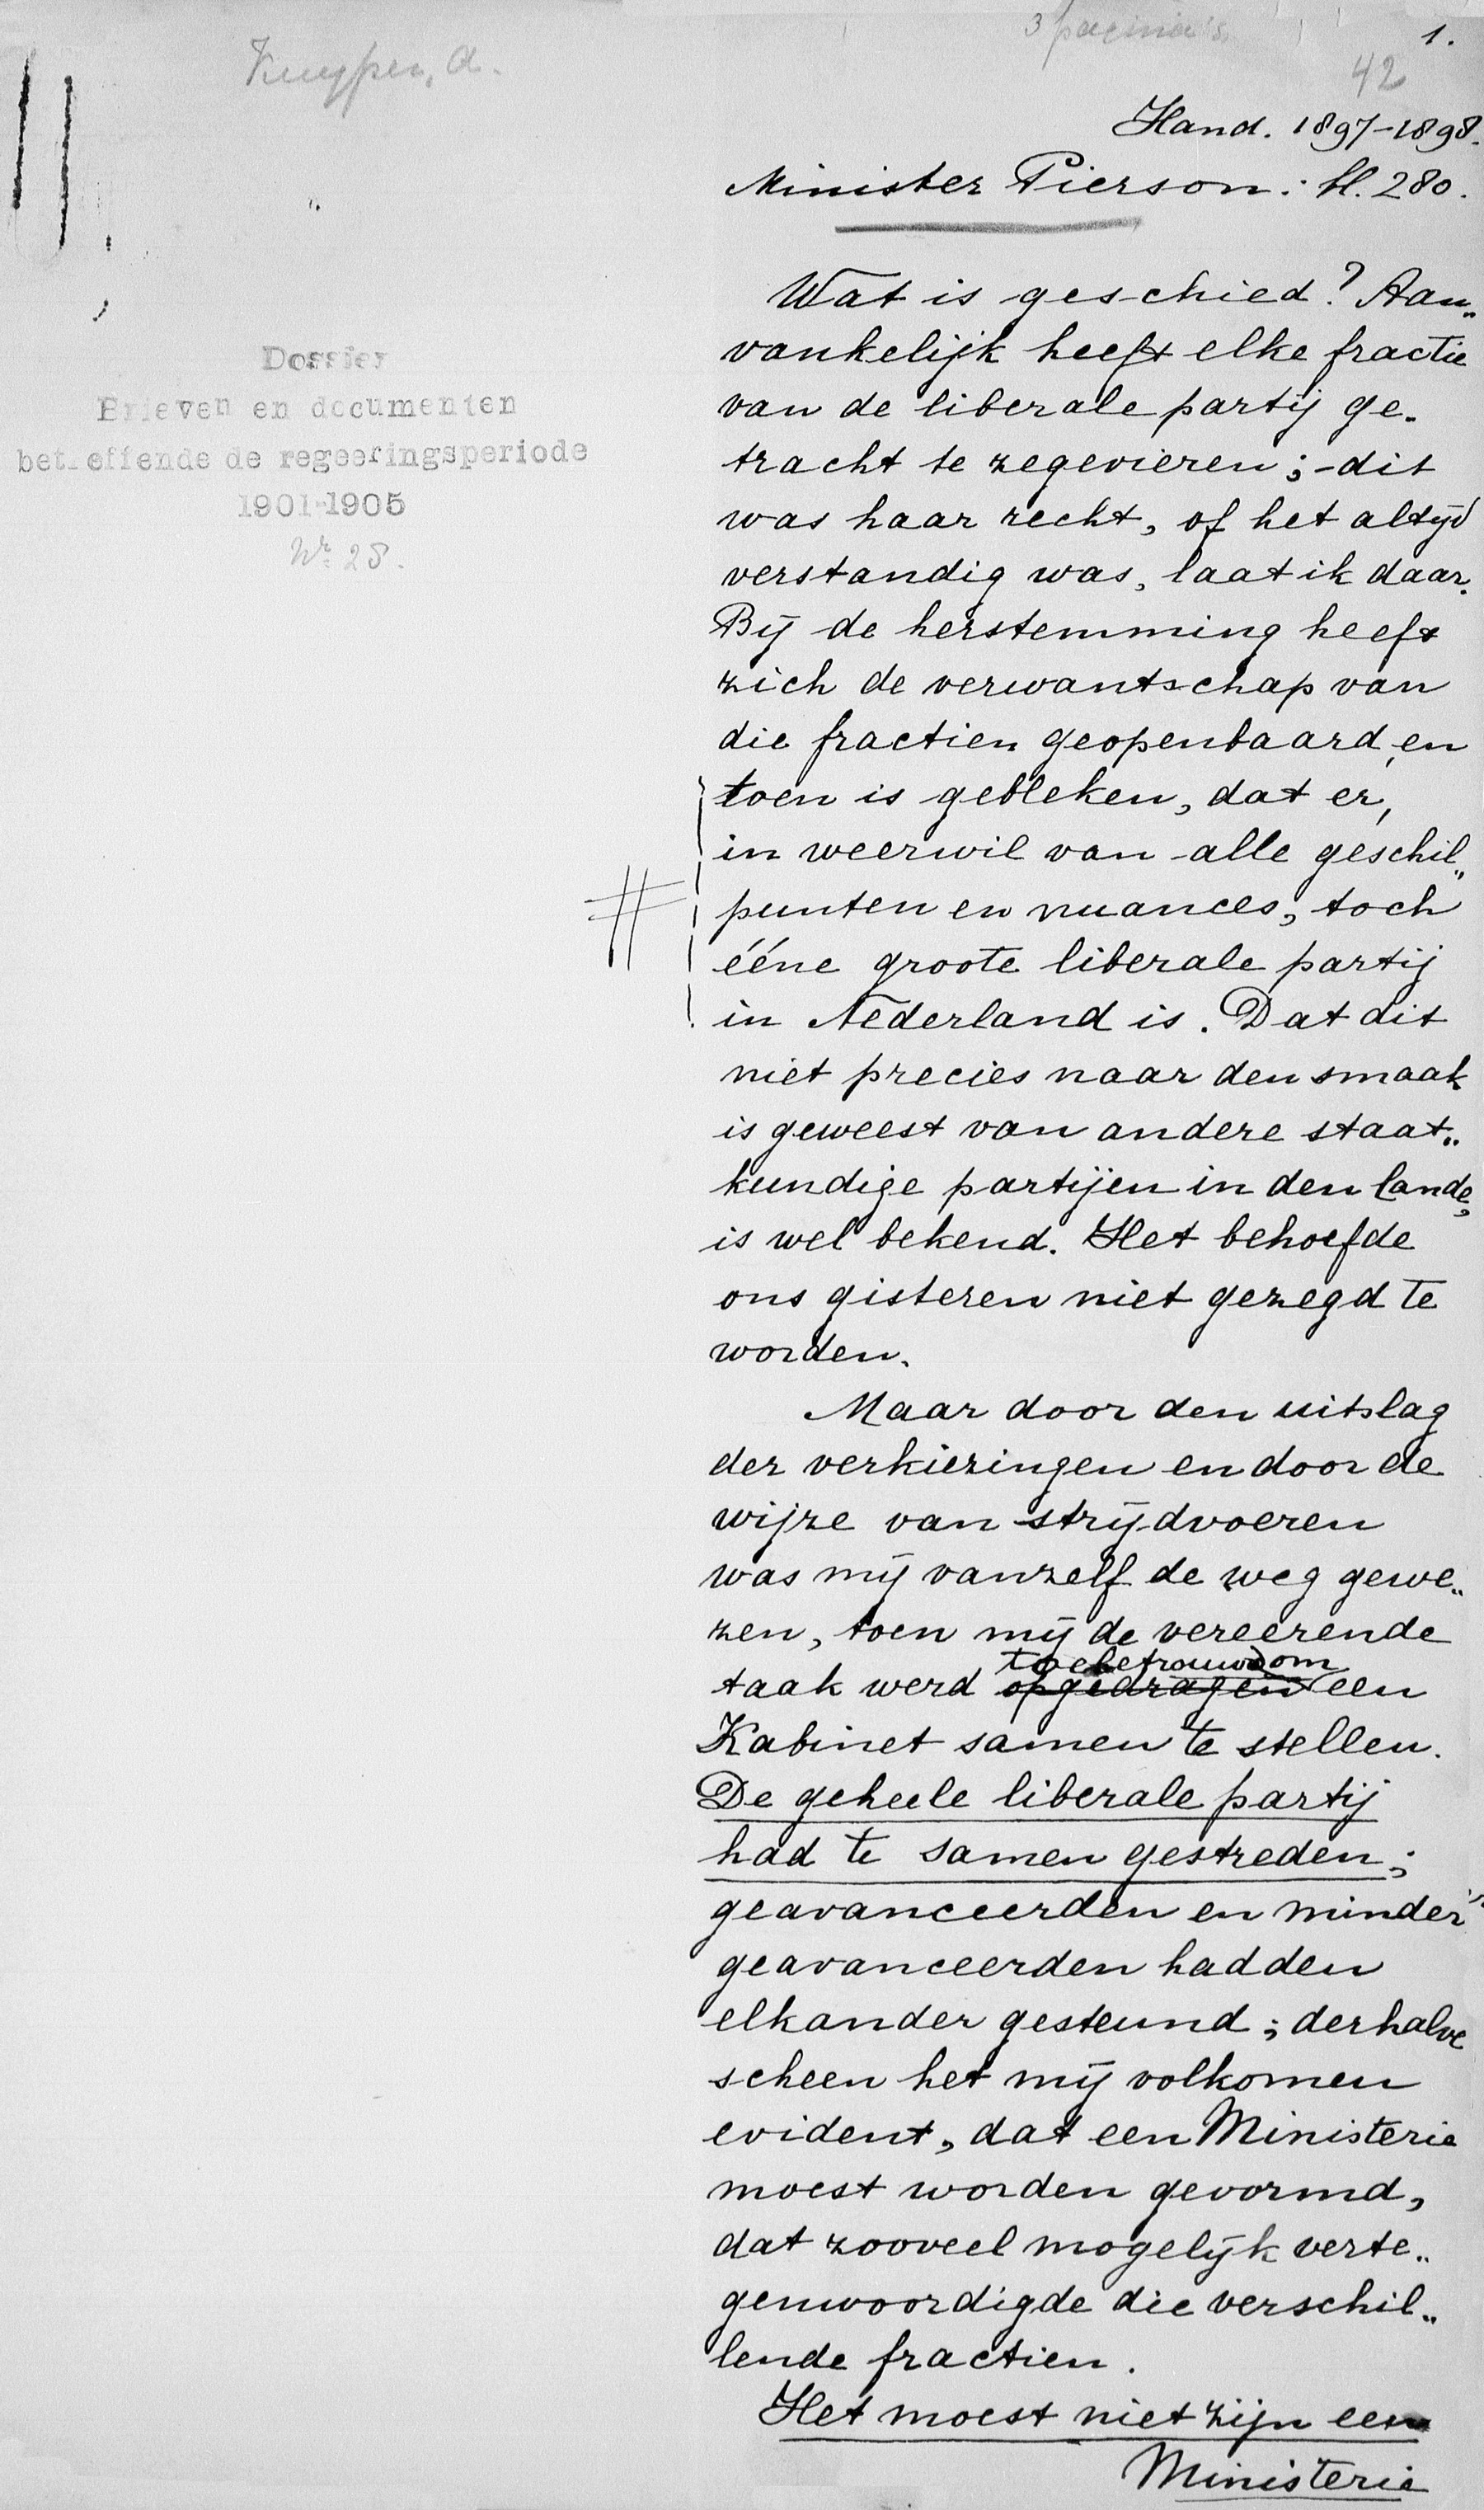 3 pagina's
1.
Kuyper, A.
42
Hand. 1897-1898.
Minister Pierson: bl. 280.
Dossier
Brieven en documenten
betreffende de regeeringsperiode
1901-1905
Nr. 28.
Wat is geschied? Aan„
vankelijk heeft elke fractie
van de liberale partij ge-
tracht te zegevieren; - dit
was haar recht, of het altijd
verstandig was, laat ik daar.
Bij de herstemming heeft
zich de verwantschap van
die fractien geopenbaard, en
toen is gebleken, dat er,
in weerwil van alle geschil„
punten en nuances, toch
ééne groote liberale partij
in Nederland is. Dat dit
niet precies naar den smaak
is geweest van andere staat„
kundige partijen in den lande,
is wel bekend. Het behoefde
ons gisteren niet gezegd te
worden.
Maar door den uitslag
der verkiezingen en door de
wijze van strijdvoeren
was mij vanzelf de weg gewe„
zen, toen mij de vereerende
toebetrouwd om
taak werd opgedragen een
Kabinet samen te stellen.
De geheele liberale partij
had te samen gestreden;
geavanceerden en minder
geavanceerden hadden
elkander gesteund; derhalve
scheen het mij volkomen
evident, dat een Ministerie
moest worden gevormd,
dat zooveel mogelijk verte„
genwoordigde die verschil„
lende fractien.
Het moest niet zijn een
Ministerie